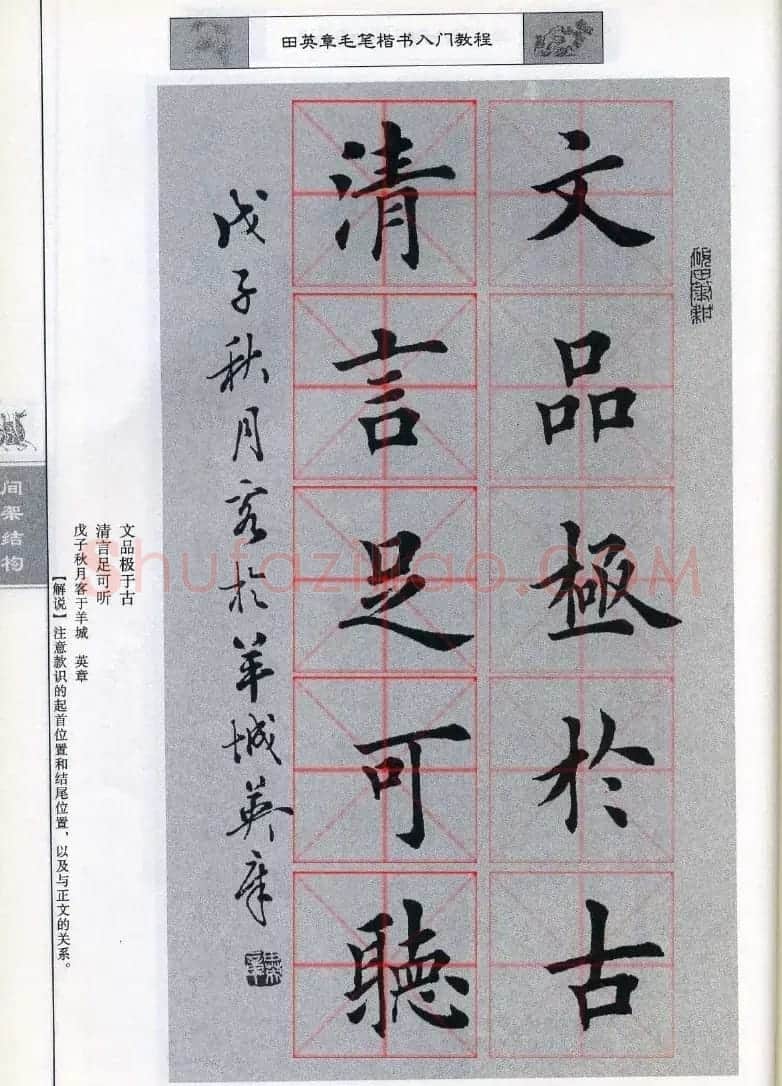 田英章毛笔楷书入门教程
文品極於古
清言足可聽
戊子秋月客於羊城英章
文品极于古
清言足可听
戊子秋月客于羊城 英章
【解说】注意款识的起首位置和结尾位置，以及与正文的关系。
间架结构
Shufaziliao.COM